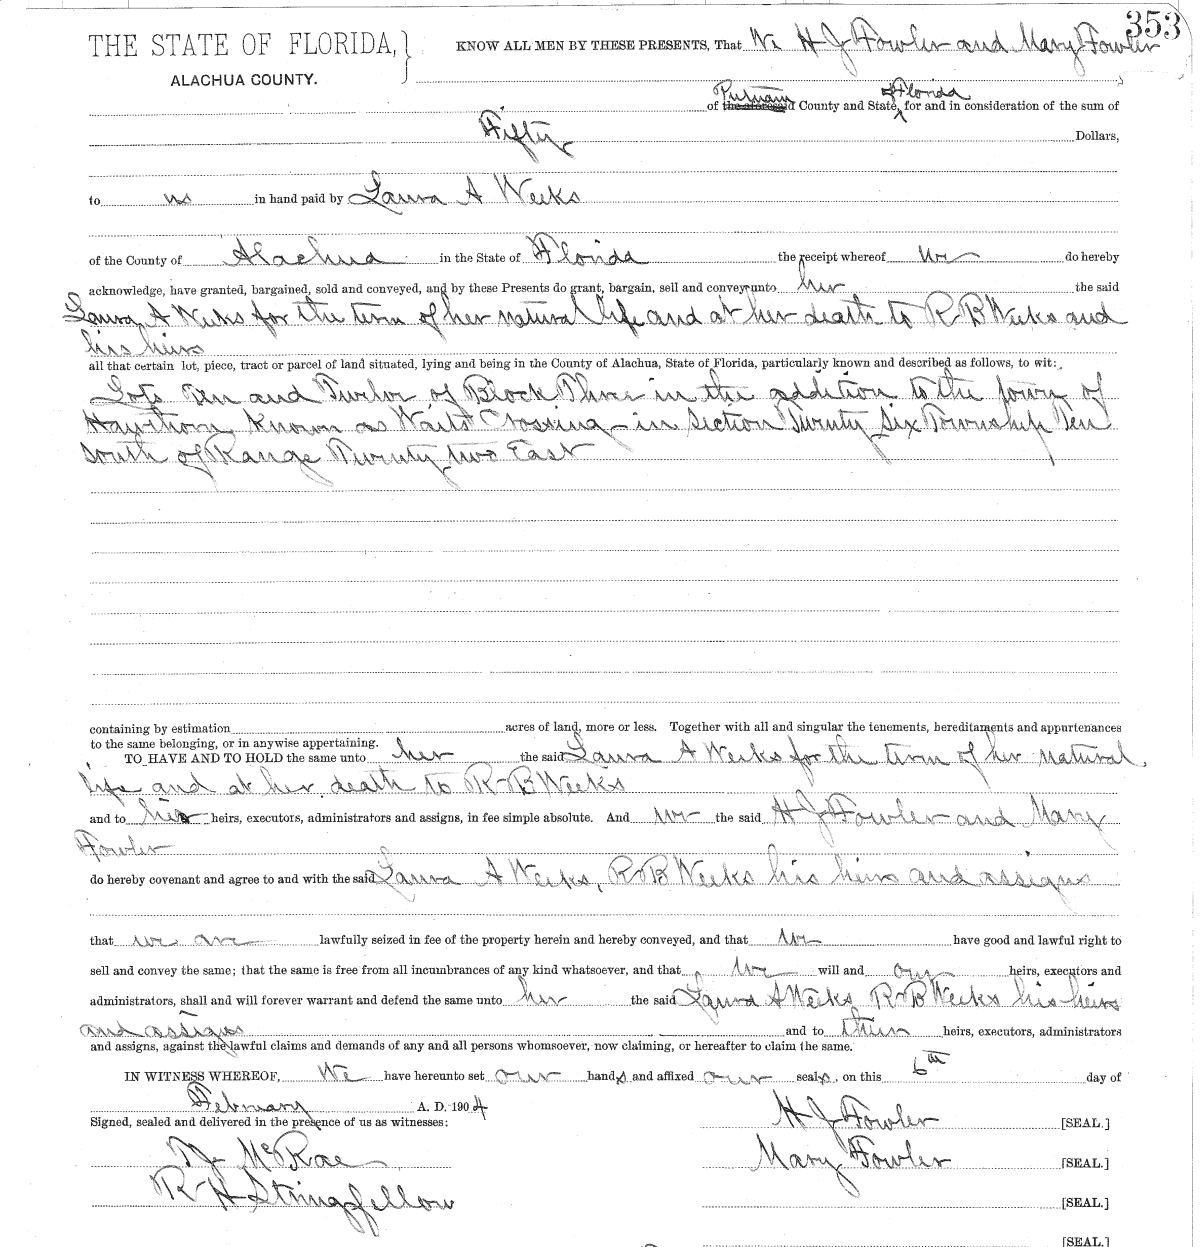 353
THE STATE OF FLORIDA,
ALACHUA COUNTY.
KNOW ALL MEN BY THESE PRESENTS, That We H J Fowler and Mary Fowler
Putnam of Florida
of the aforesaid County and State, for and in consideration of the sum of
Fifty Dollars,
to us in hand paid by Laura A Weeks
of the County of Alachua in the State of Florida the receipt whereof we do hereby
acknowledge, have granted, bargained, sold and conveyed, and by these Presents do grant, bargain, sell and convey unto her the said
Laura A Weeks for the term of her natural life and at her death to R B Weeks and
his heirs
all that certain lot, piece, tract or parcel of land situated, lying and being in the County of Alachua, State of Florida, particularly known and described as follows, to wit:
Lots Ten and Twelve of Block Three in the addition to the town of
Hawthorn Known as Waits Crossing - in Section Twenty Six Township Ten
South of Range Twenty two East
containing by estimation acres of land, more or less. Together with all and singular the tenements, hereditaments and appurtenances
to the same belonging, or in anywise appertaining.
TO HAVE AND TO HOLD the same unto her the said Laura A Weeks for the term of her natural
life and at her death to R B Weeks
and to his heirs, executors, administrators and assigns, in fee simple absolute. And we the said H J Fowler and Mary
Fowler
do hereby covenant and agree to and with the said Laura A Weeks, R B Weeks his heirs and assigns
that we are lawfully seized in fee of the property herein and hereby conveyed, and that we have good and lawful right to
sell and convey the same; that the same is free from all incumbrances of any kind whatsoever, and that we will and our heirs, executors and
administrators, shall and will forever warrant and defend the same unto her the said Laura A Weeks R B Weeks his heirs
and assigns and to their heirs, executors, administrators
and assigns, against the lawful claims and demands of any and all persons whomsoever, now claiming, or hereafter to claim the same.
IN WITNESS WHEREOF, We have hereunto set our hands and affixed our seals, on this 6th day of
February A. D. 1904
Signed, sealed and delivered in the presence of us as witnesses:
H J Fowler [SEAL.]
McRae
Mary Fowler [SEAL.]
R H Stringfellow
[SEAL.]
[SEAL.]